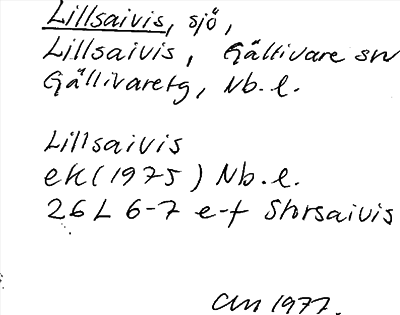 Lillsaivis, sjö,
Lillsaivis, Gällivare sn
Gällivaretg, Nb.l.
Lillsaivis
ek (1975) Nb.l.
26 L 6-7 e-f Storsaivis
1977.